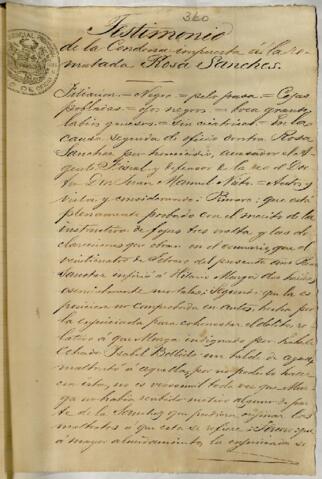 360
Testimonio
de la Condena impuesta á la re-
matada Rosa Sanchez.
Filiacion = Negra = pelo pasa = Cejas
pobladas = ojos negros = boca grande
labios gruesos = Sin cicatrices = En la
causa seguida de oficio contra Rosa
Sanchez por homicidio, acusador el A-
gente Fiscal, y defensor de la reo el Doc-
tor Don Juan Manuel = Autos y
vistos y considerando: Primero: que está
plenamente probado con el mérito de la
instructiva de fojas tres vuelta y las de-
claraciones que obran en el sumario, que el
veintinueve de Febrero del presente año Rosa
Sanchez infirió á Hilario Murga dos heridas
esencialmente mortales: Segundo: que la es-
posicion no comprobada en autos, hecha por
la enjuiciada para cohonestar el delito re-
lativo á que Murga indignado por haberle
echado Isabel un balde de agua,
maltrató á aquella, por no poderlo hacer
con esta, no es verosimil toda vez que Mur-
ga no habia sentido motivo alguno de par-
te de la Sanchez que pudiera originar los
maltratos á que esta se refiere: Tercero: que
á mayor abundamiento, la enjuiciada se